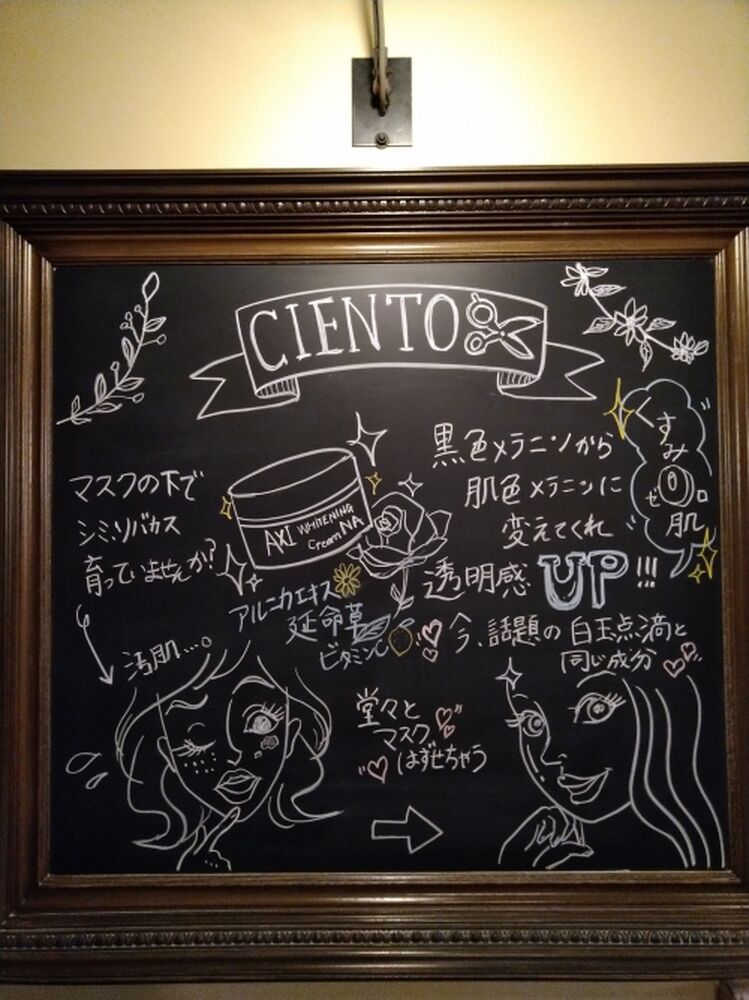 CIENTO
マスクの下で
シミ、ソバカス
育っていませんか?
汚肌…。
AXI WHITENING
Cream NA
アルニカエキス
延命草
ビタミンC
黒色メラニンから
肌色メラニンに
変えてくれ
透明感UP!!!
くすみ
ゼロ
肌
今、話題の白玉点滴と
同じ成分
堂々と
マスク
はずせちゃう